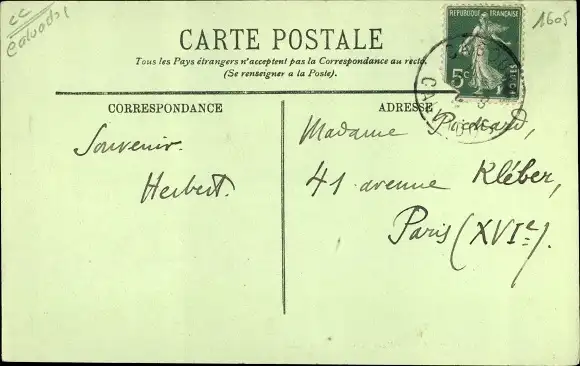 CC
Calvados
1605
CARTE POSTALE
Tous les Pays étrangers n'acceptent pas la Correspondance au recto.
(Se renseigner a la Poste).
REPUBLIQUE FRANÇAISE
5c
POSTES
CORRESPONDANCE
ADRESSE
Souvenir.
Herbert.
Madame
41 avenue Kléber,
Paris (XVIe).